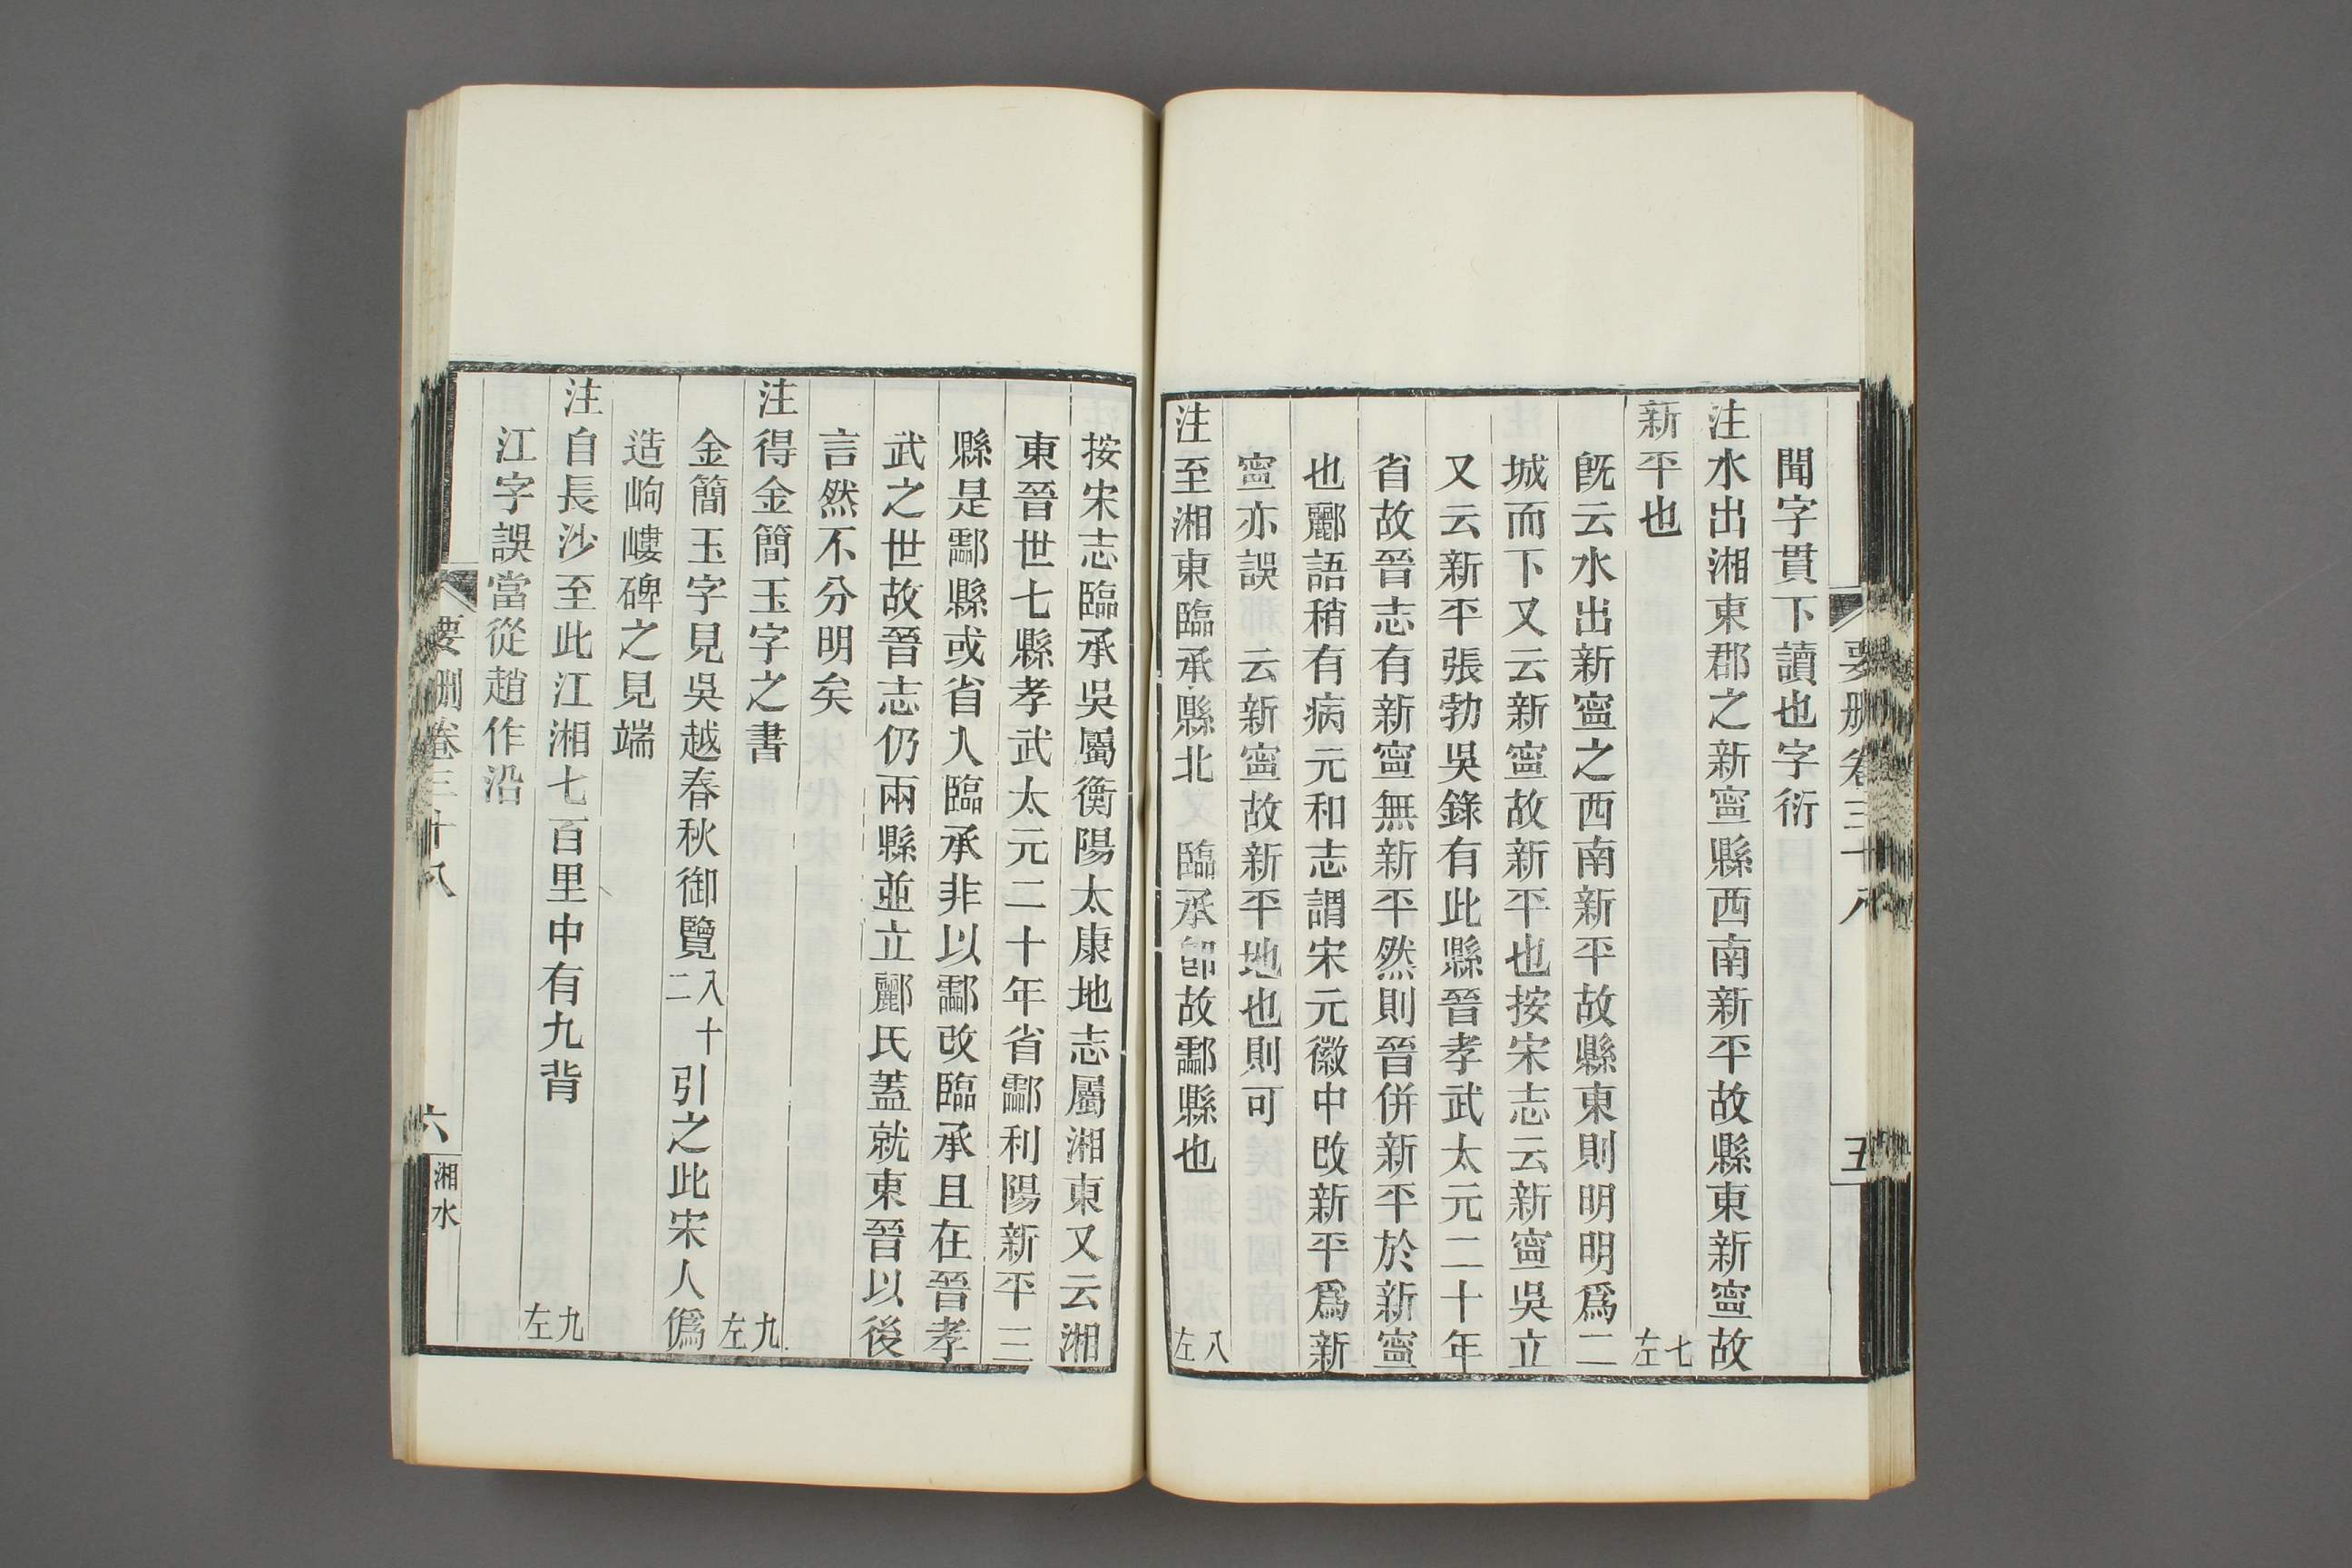 要刪卷三十八
五
聞字貫下讀也字衍
注水出湘東郡之新寍縣西南新平故縣東新寍故
新平也 七左
旣云水出新寍之西南新平故縣東則明明爲二
城而下又云新寍故新平也按宋志云新寍吳立
又云新平張勃吳錄有此縣晉孝武太元二十年
省故晉志有新寍無新平然則晉併新平於新寍
也酈語稍有病元和志謂宋元徽中改新平爲新
寍亦誤 云新寍故新平地也則可
注至湘東臨承縣北 臨承卽故酃縣也 八左
按宋志臨承吳屬衡陽太康地志屬湘東又云湘
東晉世七縣孝武太元二十年省酃利陽新平三
縣是酃縣或省入臨承非以酃改臨承且在晉孝
武之世故晉志仍兩縣並立酈氏蓋就東晉以後
言然不分明矣
注得金簡玉字之書 九左
金簡玉字見吳越春秋御覽八十二引之此宋人僞
造岣嶁碑之見端
注自長沙至此江湘七百里中有九背 九左
江字誤當從趙作沿
要刪卷三十八
六
湘水